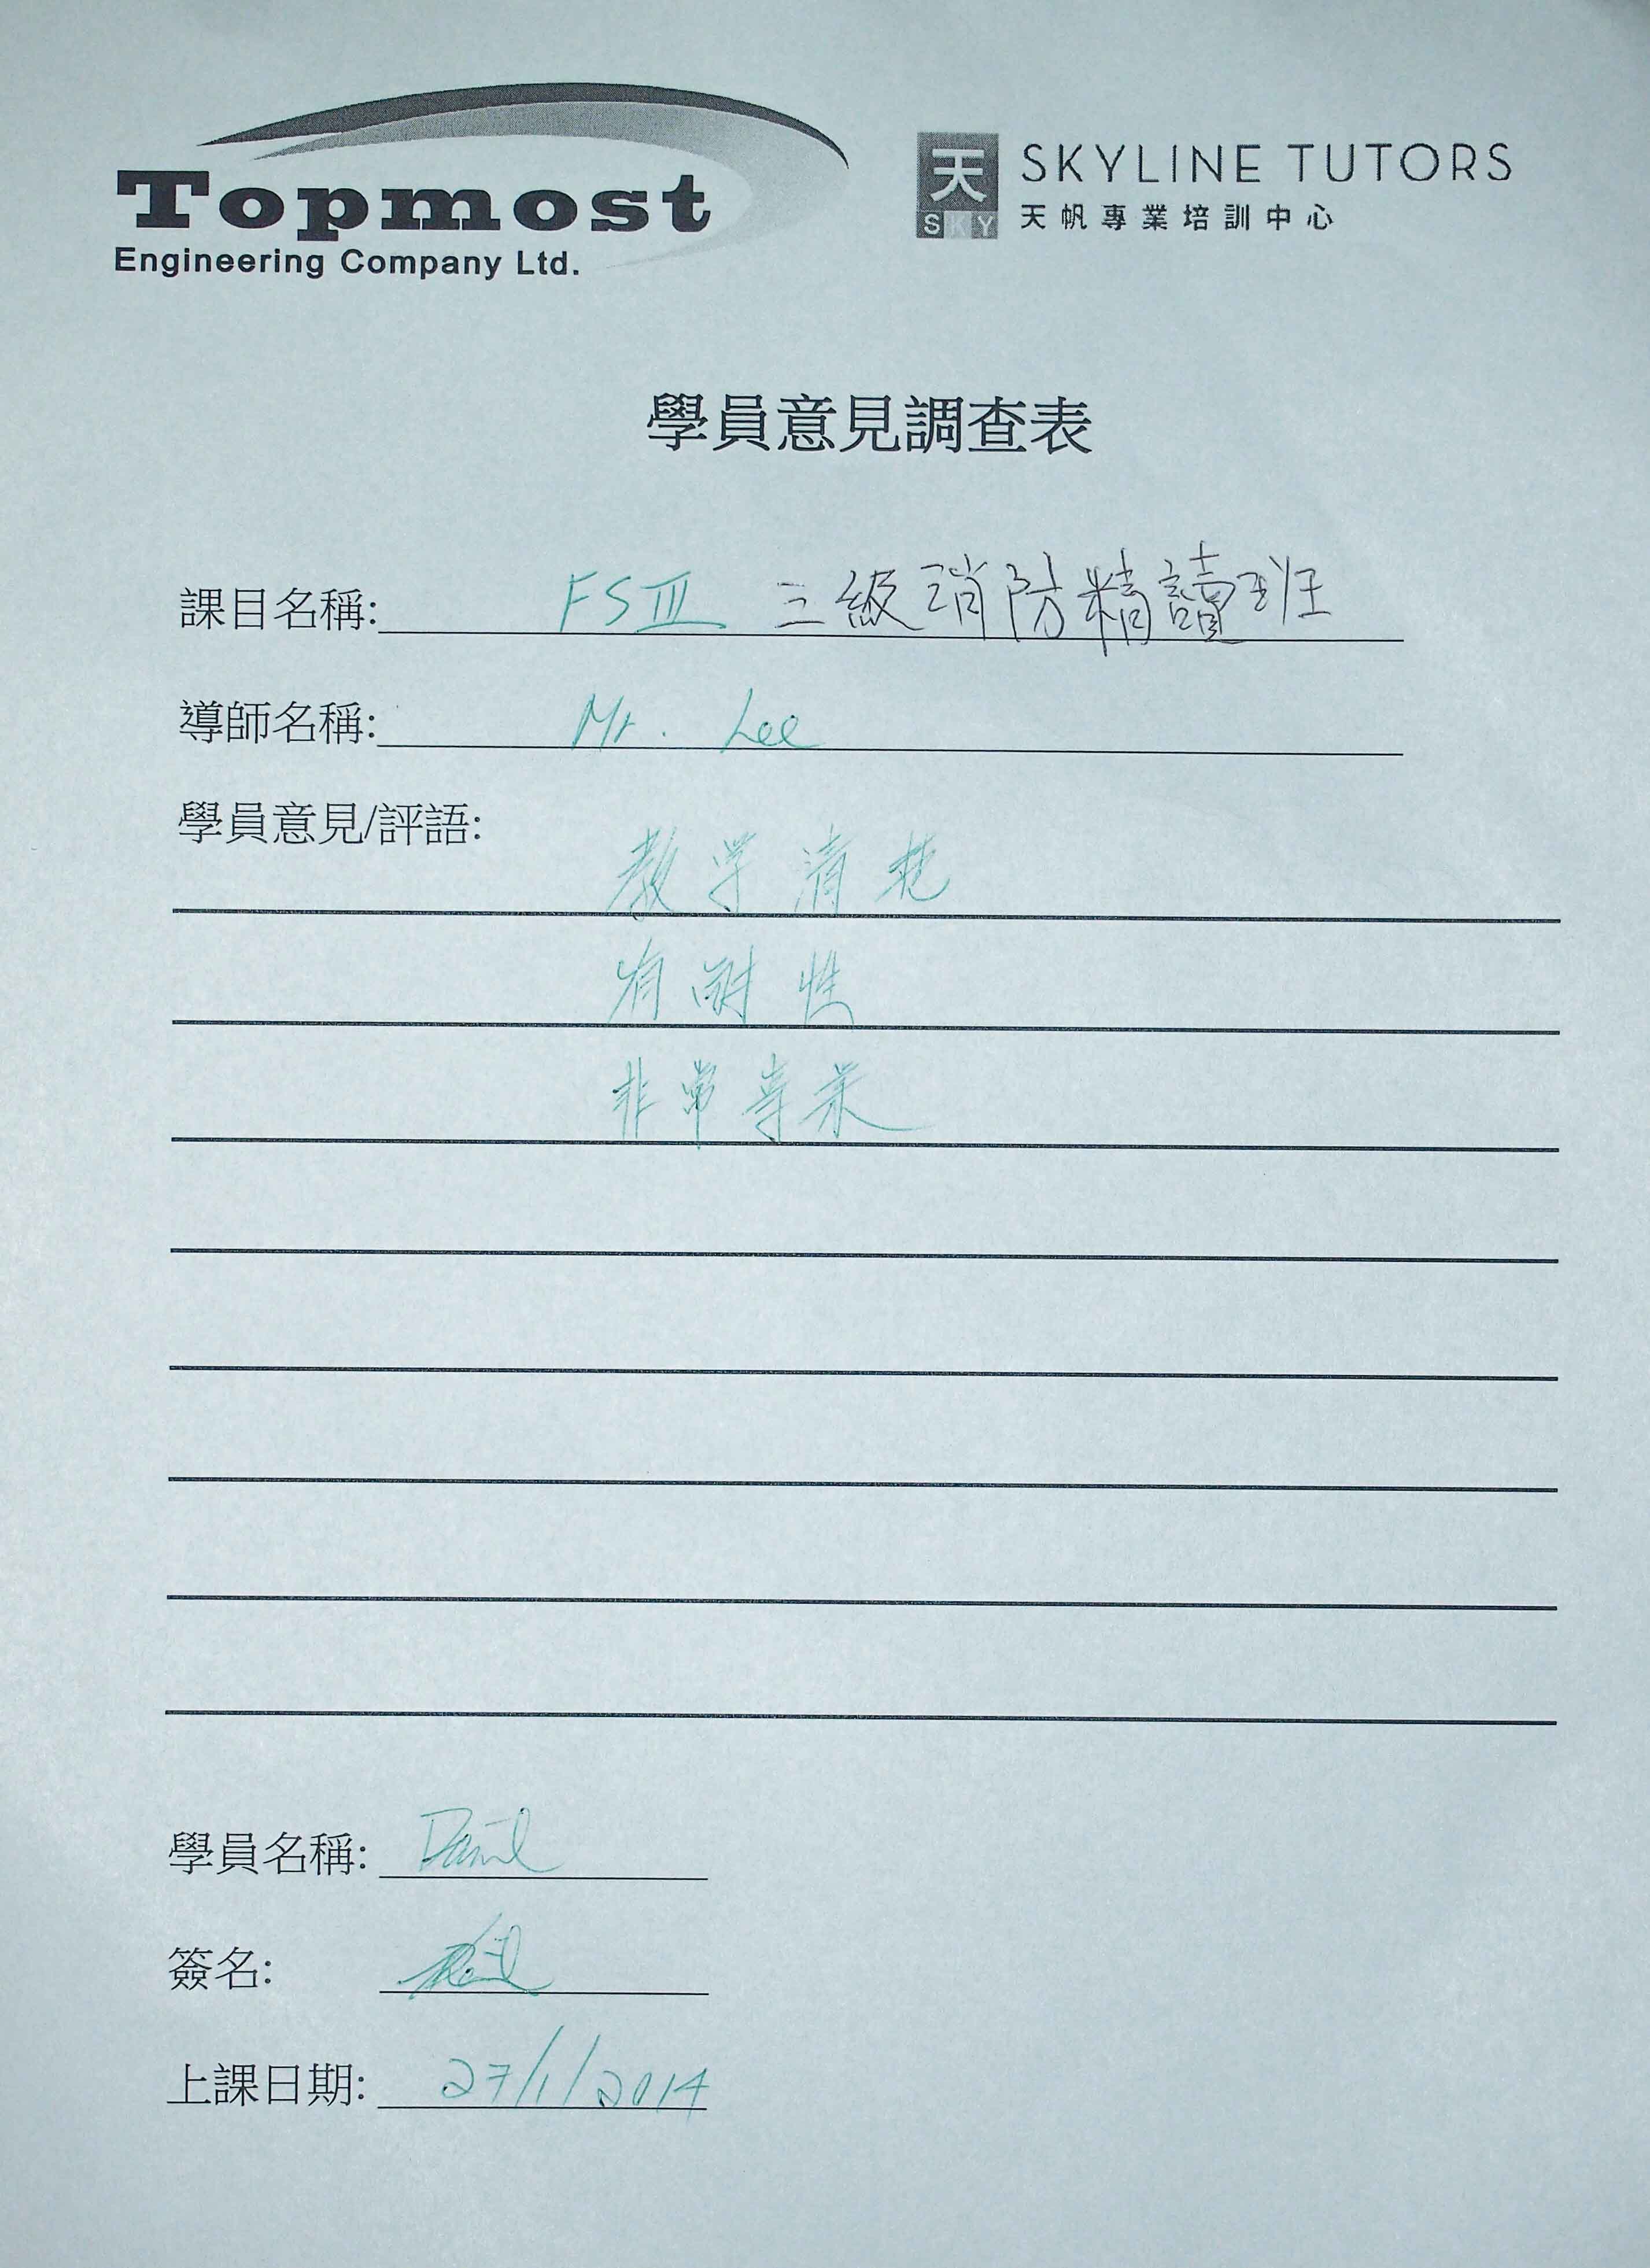 Topmost
Engineering Company Ltd.
天
SKY
SKYLINE TUTORS
天帆專業培訓中心
學員意見調查表
課目名稱: FSIII 三級消防精讀班
導師名稱: Mr. Lee
學員意見/評語:
教学清楚
有耐性
非常專業
學員名稱: Daniel
簽名:
上課日期: 27/1/2014